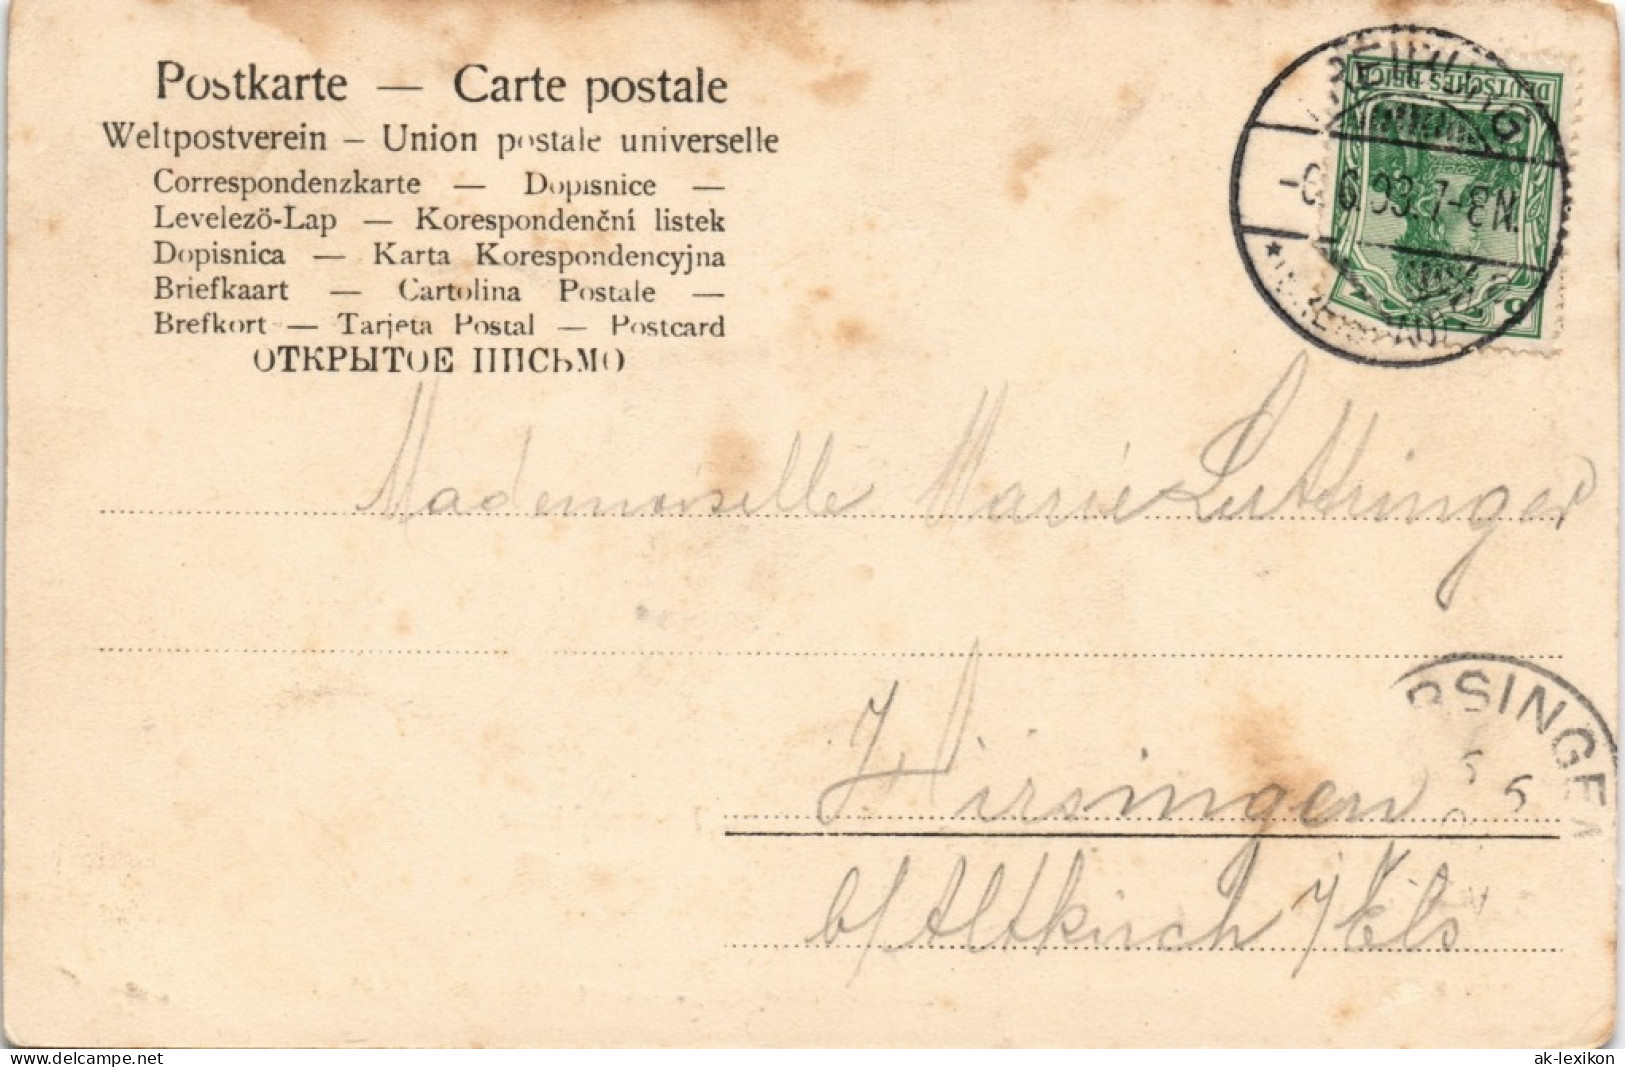 Postkarte — Carte postale
Weltpostverein – Union postale universelle
Correspondenzkarte — Dopisnice —
Levelezö-Lap — Korespondenční listek
Dopisnica — Karta Korespondencyjna
Briefkaart — Cartolina Postale —
Brefkort — Tarjeta Postal — Postcard
ОТКРЫТОЕ ПИСЬМО
DEUTSCHES REICH
6.03.7-8N.
Mademoiselle Marie Luttringer
SINGEN
Hirsingen
b/Altkirch i/Els
delcampe.net
ak-lexikon